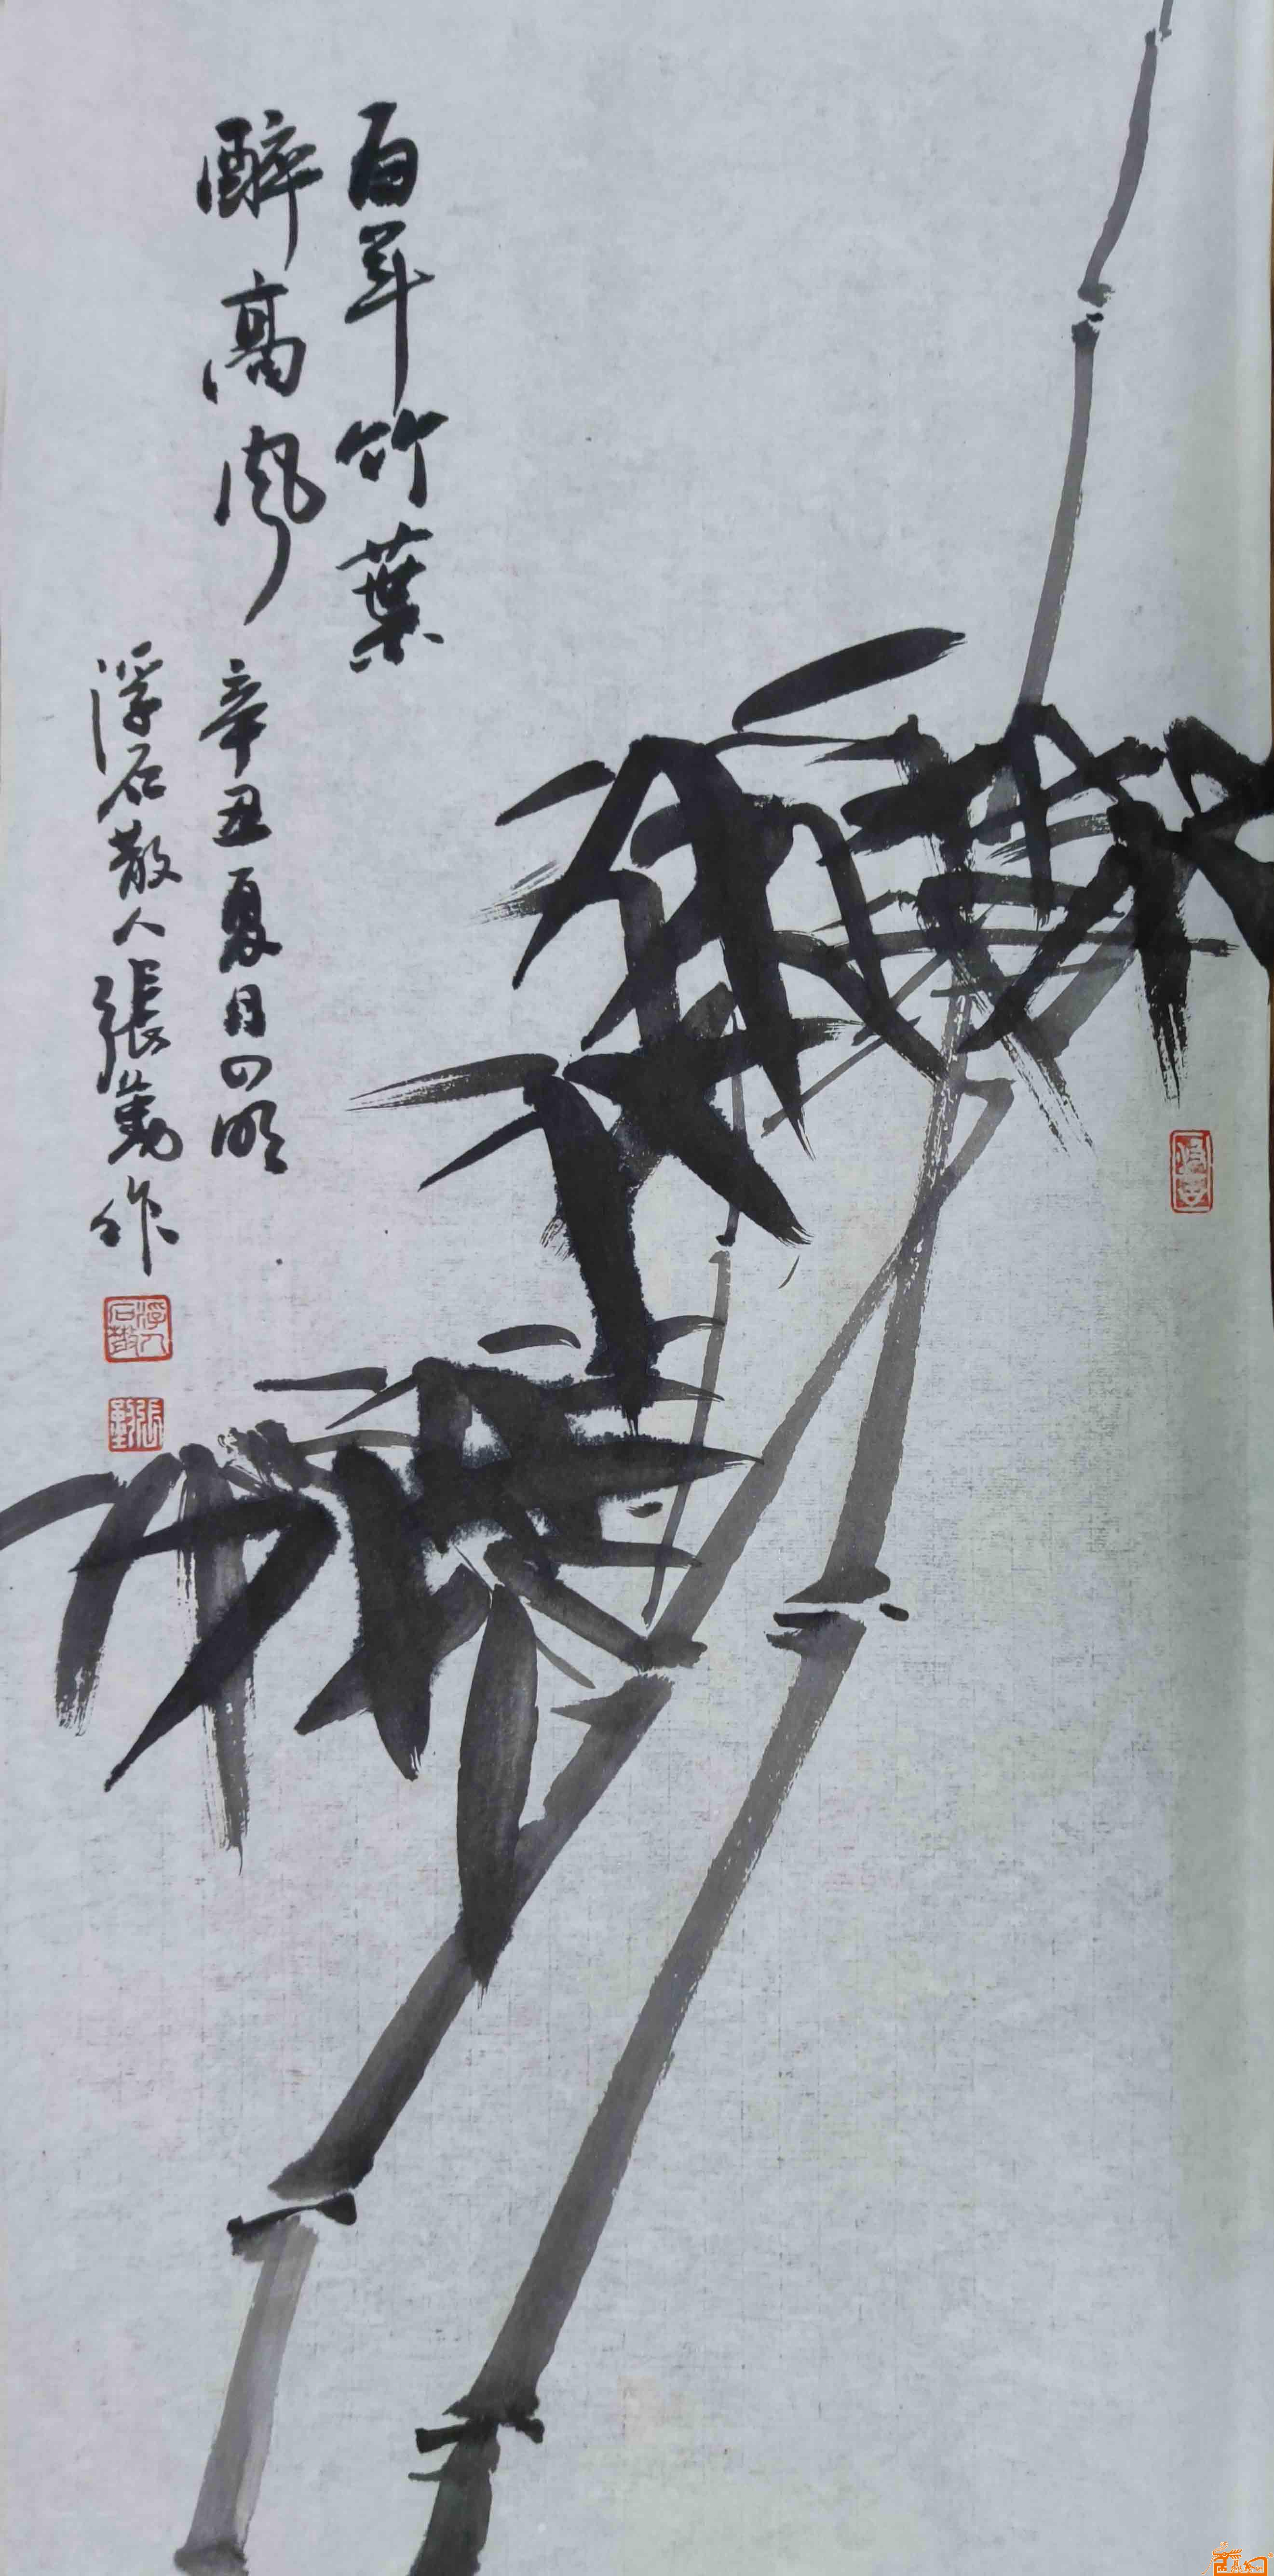 百年竹葉
醉高風 辛丑夏日四明
浮石散人張勤作
浮石散人
張勤